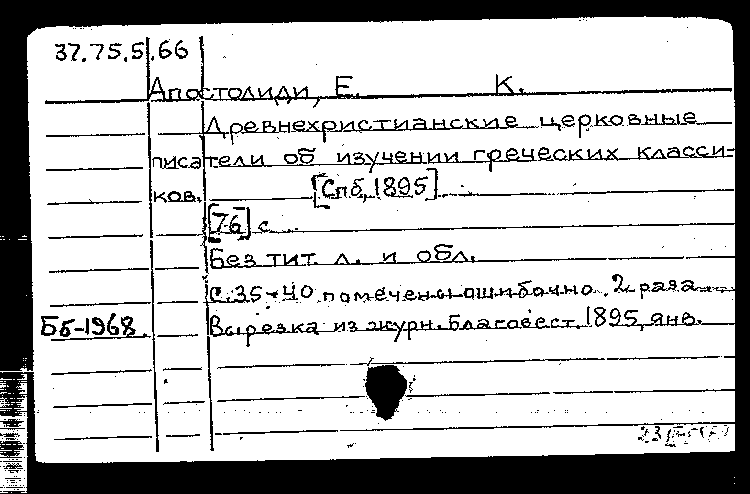 37.75.5.66
Апостолиди, Е. К.
Древнехристианские церковные
писатели об изучении греческих класси-
ков. [Спб, 1895]
[76] с.
Без тит. л. и обл.
С. 35-40 помечены ошибочно 2 раза
Бб-1968. Вырезка из журн. Благовест. 1895, янв.